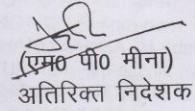 (एम० पी० मीना)
अतिरिक्त निदेशक